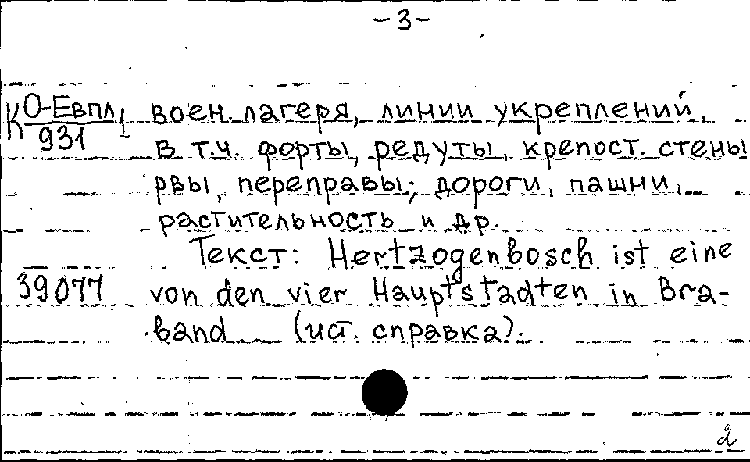 -3-
К О-Евпл
931
воен. лагеря, линии укреплений,
в т.ч. форты, редуты, крепост. стены
рвы, переправы; дороги, пашни,
растительность и др.
Текст: Hertzogenbosch ist eine
39077
von den vier Hauptstadten in Bra-
band (ист. справка).